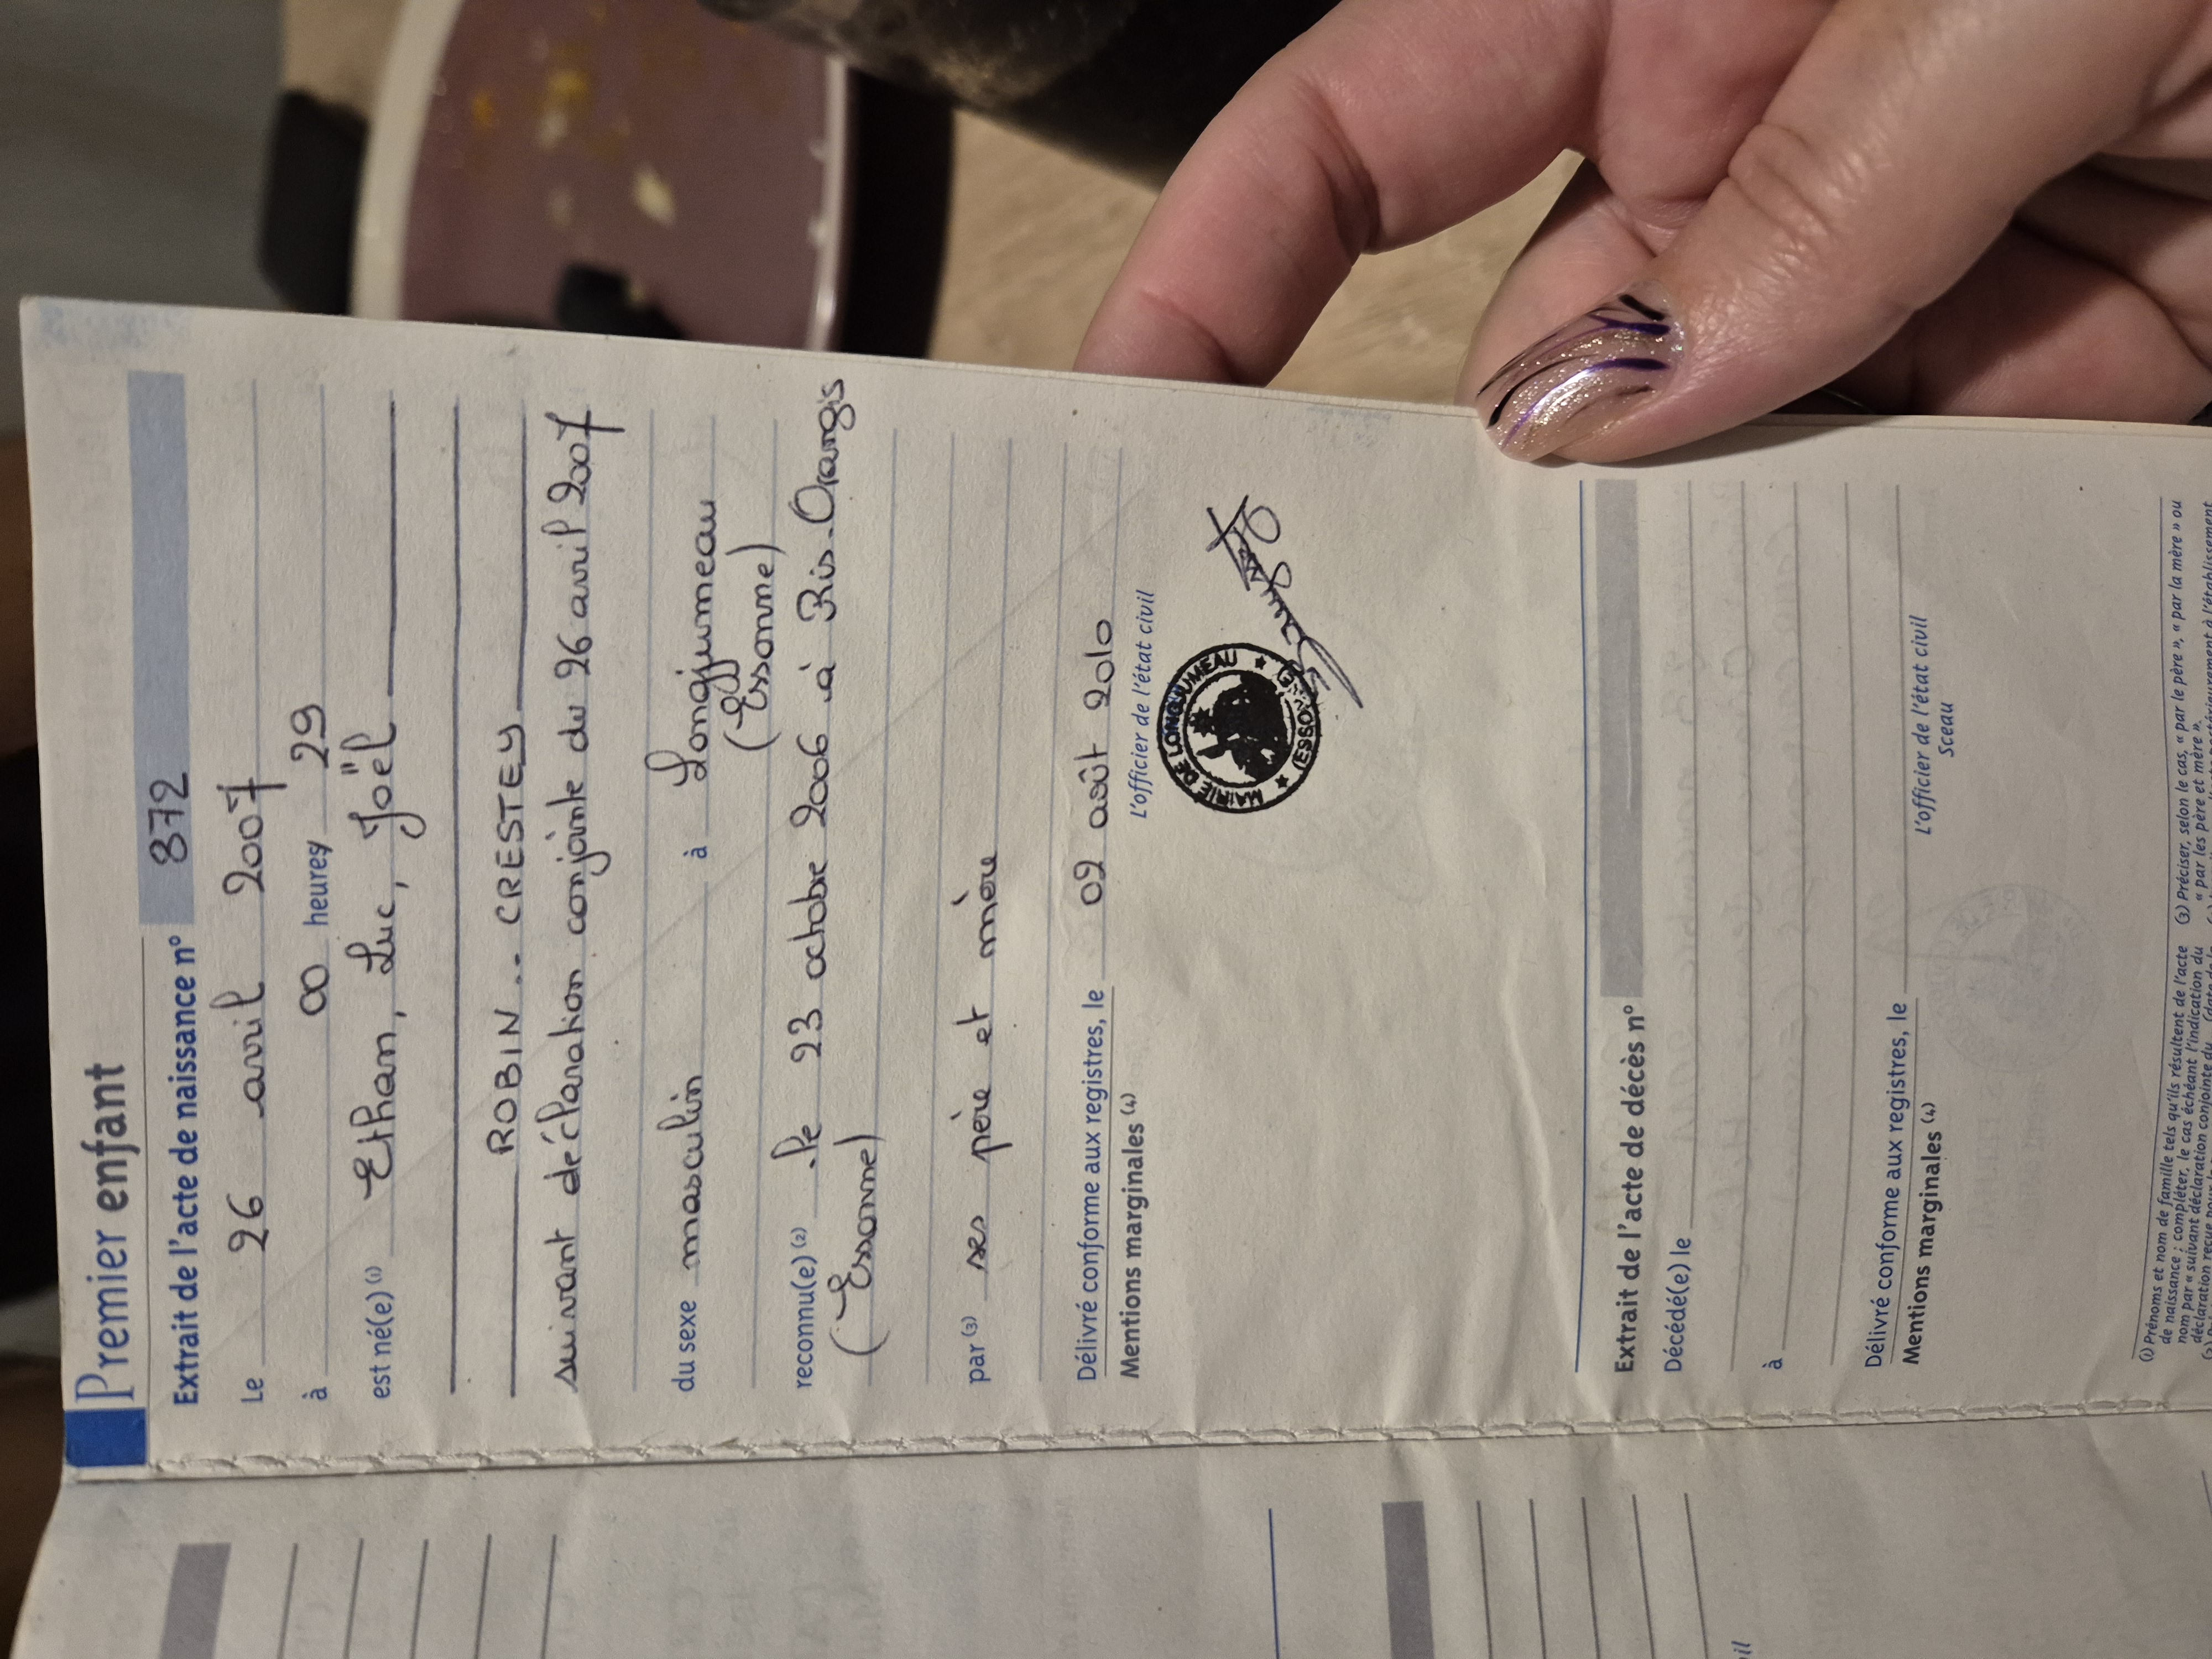 Premier enfant
Extrait de l'acte de naissance n° 872
Le 26 avril 2007
à 00 heures 29
est né(e) (1) Ethan, Luc, Joël
ROBIN -- CRESTEY
suivant déclaration conjointe du 26 avril 2007
du sexe masculin à Longjumeau
(Essonne)
reconnu(e) (2) le 23 octobre 2006 à Ris-Orangis
(Essonne)
par (3) ses père et mère
Délivré conforme aux registres, le 02 août 2010
Mentions marginales (4)
L'officier de l'état civil
MAIRIE DE LONGJUMEAU
(ESSONNE)
Extrait de l'acte de décès n°
Décédé(e) le
à
Délivré conforme aux registres, le
Mentions marginales (4)
L'officier de l'état civil
Sceau
(1) Prénoms et nom de famille tels qu'ils résultent de l'acte
de naissance ; compléter, le cas échéant l'indication du
nom par « suivant déclaration conjointe du
déclaration reçue
(3) Préciser, selon le cas, « par le père », « par la mère » ou
« par les père et mère ».
à l'établissement